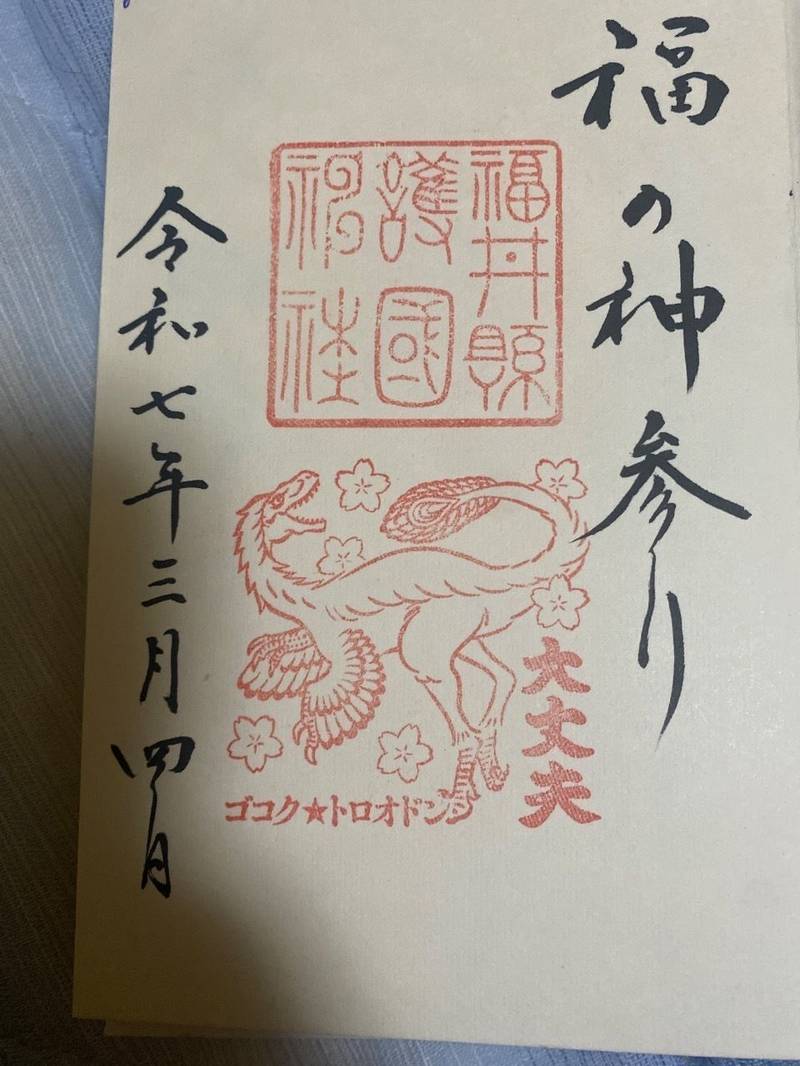 福の神参り
福井縣
護國
神社
大丈夫
ゴコク★トロオドン
令和七年三月四日